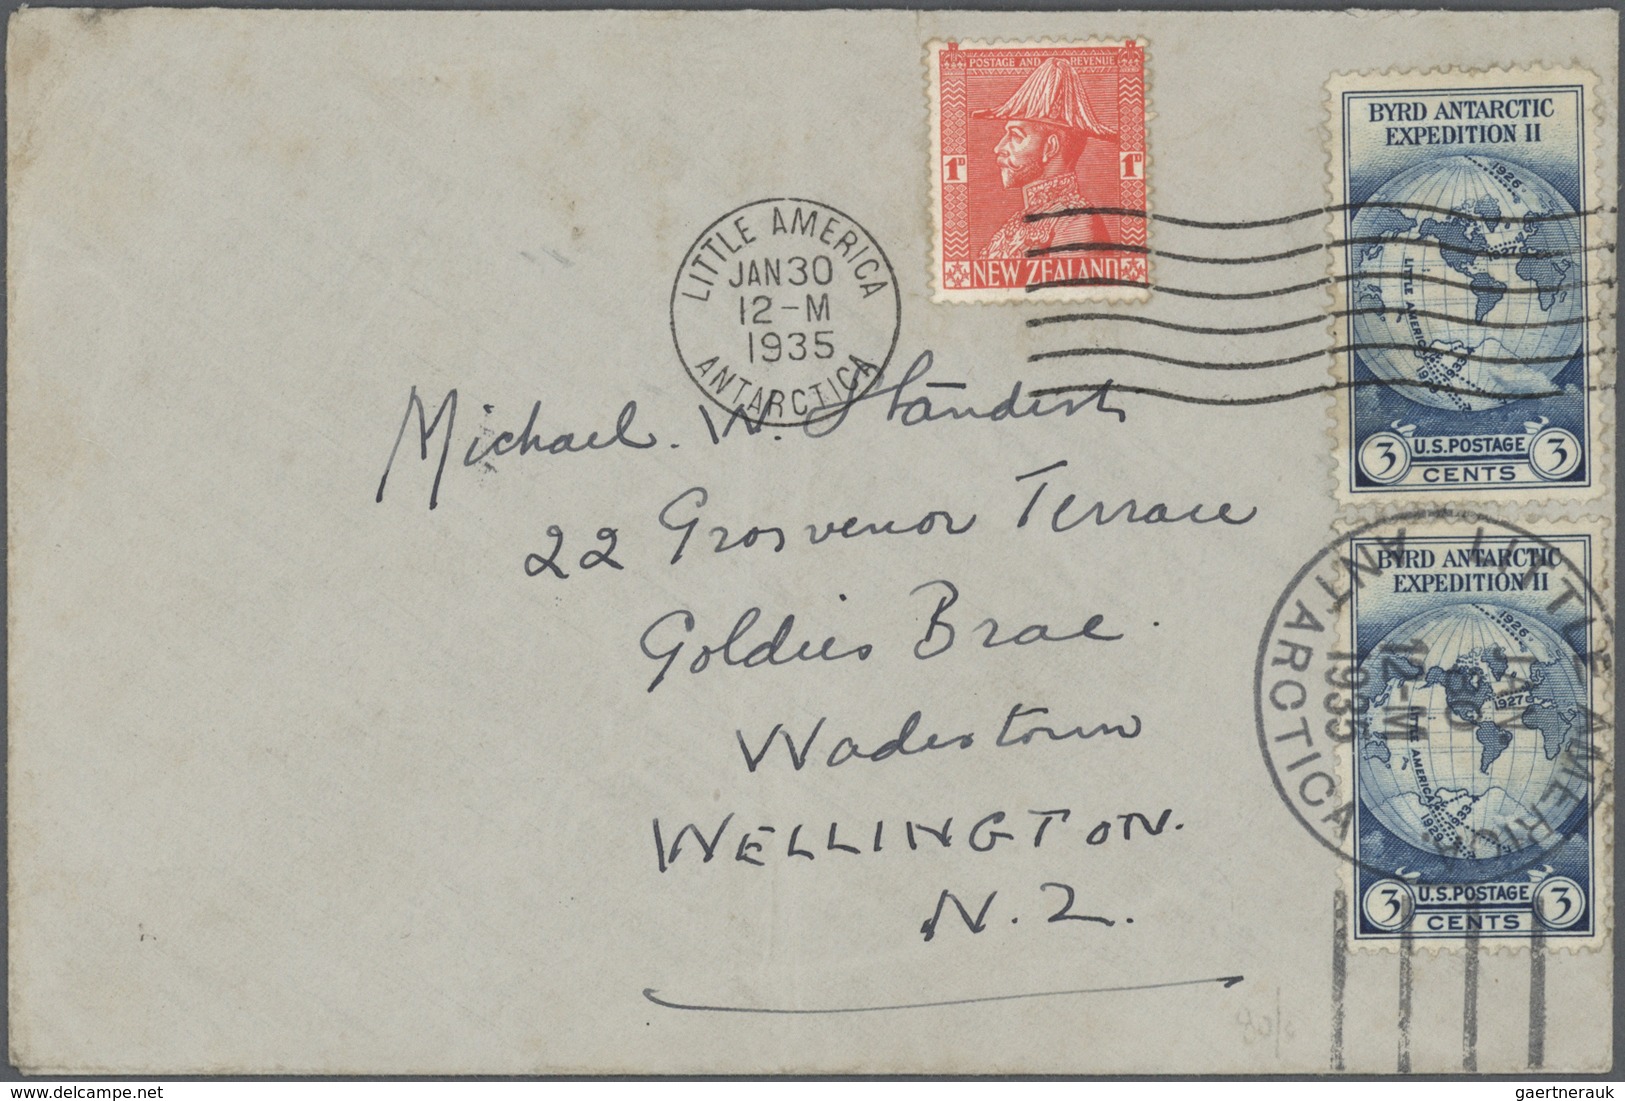 POSTAGE AND REVENUE
1D 1D
NEW ZEALAND
LITTLE AMERICA
JAN 30
12-M
1935
ANTARCTICA
BYRD ANTARCTIC
EXPEDITION II
1926
1927
LITTLE AMERICA
1933
1929
3 U.S. POSTAGE 3
CENTS
Michael. W. Standish
22 Grosvenor Terrace
Goldies Brae.
Wadestown
WELLINGTON.
N.Z.
BYRD ANTARCTIC
EXPEDITION II
1926
1927
LITTLE AMERICA
1933
1929
3 U.S. POSTAGE 3
CENTS
LITTLE AMERICA
JAN
30
12-M
1935
ANTARCTICA
www.delcampe.net
gaertnerauk